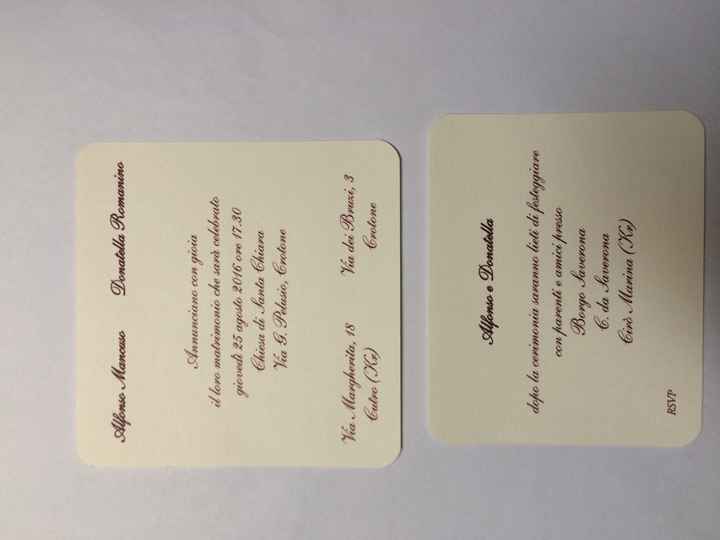 Alfonso Mancuso Donatella Romanino
Annunciano con gioia
il loro matrimonio che sarà celebrato
giovedì 25 agosto 2016 ore 17.30
Chiesa di Santa Chiara
Via G. Pelusio, Crotone
Via Margherita, 18 Via dei Bruzi, 3
Cutro (Kr) Crotone
Alfonso e Donatella
dopo la cerimonia saranno lieti di festeggiare
con parenti e amici presso
Borgo Saverona
C. da Saverona
Cirò Marina (Kr)
RSVP